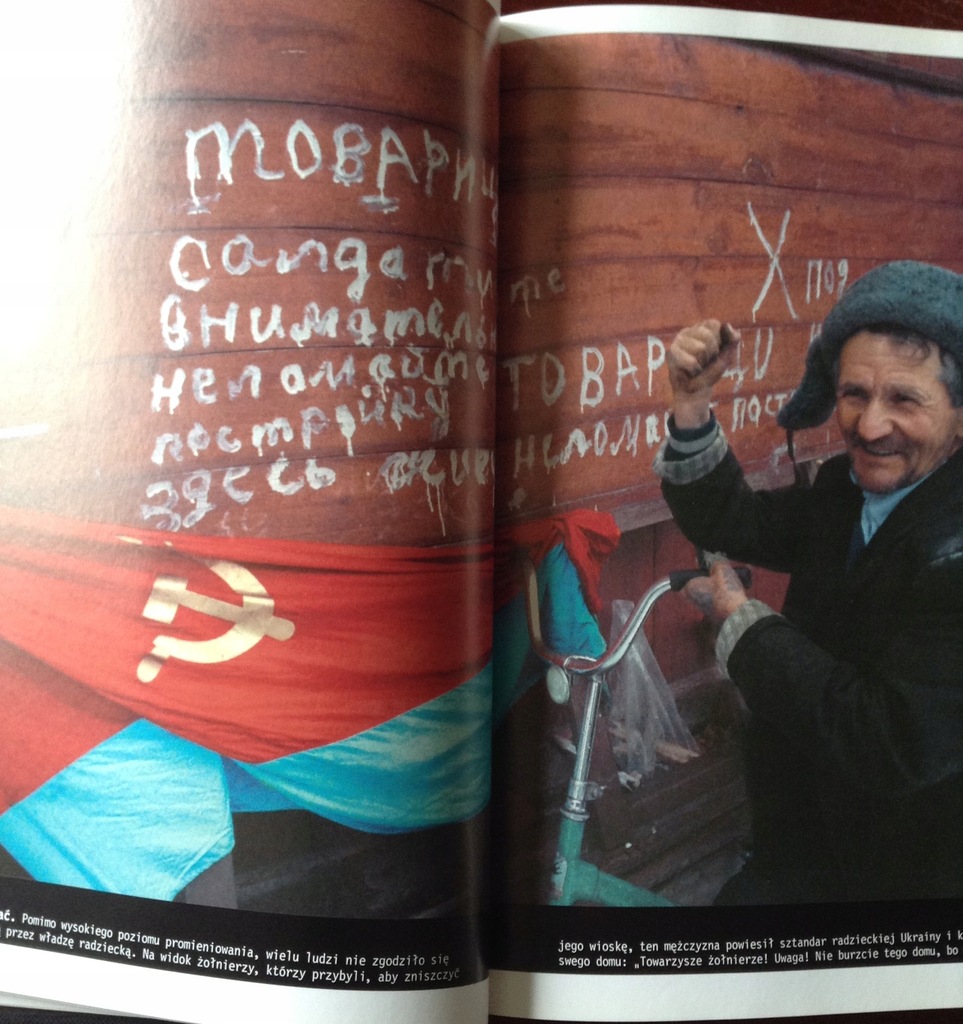 ТОВАРИЩ
салдати
внимательн
неламайте
пастрайку
здесь живе
те
Х под
ТОВАРИЩИ
неломай пост
ać. Pomimo wysokiego poziomu promieniowania, wielu ludzi nie zgodziło się
przez władzę radziecką. Na widok żołnierzy, którzy przybyli, aby zniszczyć
jego wioskę, ten mężczyzna powiesił sztandar radzieckiej Ukrainy i k
swego domu: „Towarzysze żołnierze! Uwaga! Nie burzcie tego domu, bo